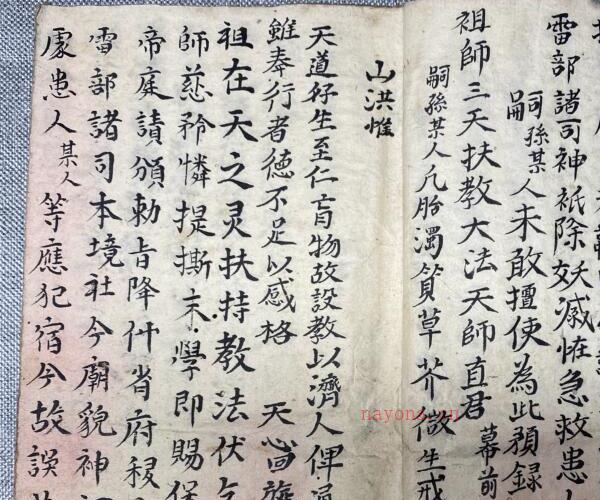 雷部諸司神祇除妖滅怪急救患
嗣孫某人未敢擅使為此預錄
祖師三天扶教大法天師真君 幕前
嗣孫某人凡胎濁質草芥微生戒
山洪惟
天道好生至仁育物故設教以濟人俾
雖奉行者德不足以感格 天心回
祖在天之灵扶持教法伏乞
師慈矜憐提撕末學即賜
帝庭請頒勅旨降仟省府稷
雷部諸司本境社今廟貌神
處患人某人等應犯宿今故誤